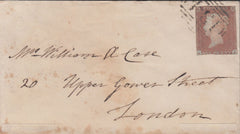 Mrs William A Case
20 Upper Gower Street
London